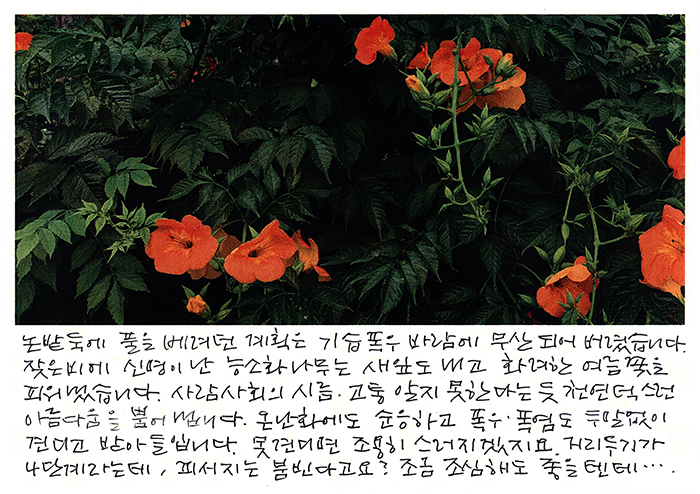 논밭둑에 풀을 베려던 계획은 기습폭우 바람에 무산되어 버렸습니다.
잦은비에 신명이 난 능소화나무는 새잎도 내고 화려한 여름꽃을
피워냈습니다. 사람사회의 시름·고통 알지 못한다는 듯 천연덕스런
아름다움을 뿜어냅니다. 온난화에도 순응하고 폭우·폭염도 두말없이
견디고 받아들입니다. 못견디면 조용히 스러지겠지요. 거리두기가
4단계라는데, 피서지는 붐빈다고요? 조금 조심해도 좋을텐데….